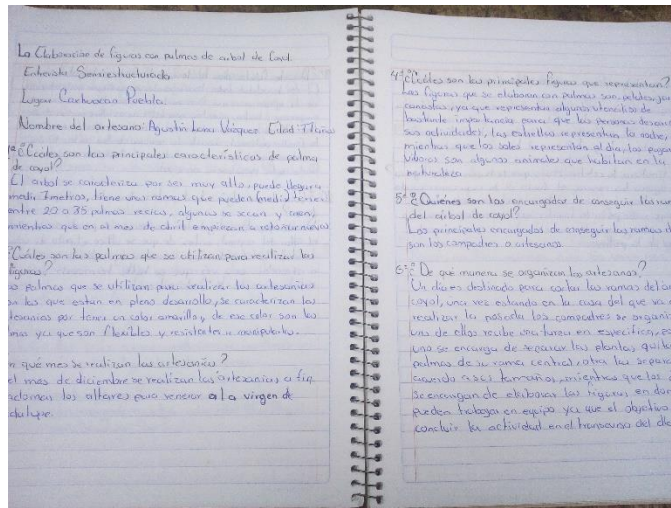 La Elaboración de figuras con palmas de arbol de Coyol.
Entrevista Semiestructurada
Lugar Puebla
Nombre del artesano: Agustin Luna Vázquez Edad: 71 años
1ª ¿Cuáles son las principales características de palma
de coyol?
El arbol se caracteriza por ser muy alto, puede llegar a
medir 7 metros, tiene unas ramas que pueden medir tener
entre 20 a 35 palmas recias, algunas se secan y caen,
mientras que en el mes de abril empiezan a retoñar nuevas
¿Cuáles son las palmas que se utilizan para realizar las
figuras?
palmas que se utilizan para realizar las artesanias
son las que estan en pleno desarollo, se caracterizan las
artesanias por tener un color amarillo y de ese color son las
palmas ya que son flexibles y resistentes a manipularlas.
n qué mes se realizan las artesanias?
el mes de diciembre se realizan las artesanias a fin
adornar los altares para venerar a la virgen de
dalupe.
4ª ¿Cuáles son las principales figuras que representan?
Las figuras que se elaboran con palmas son petates,
canastas, ya que representan algunos utencilios de
bastante importancia para que las personas
sus actividades, las estrellas representan la noche,
mientras que los soles representan al dia, los
viboras son algunos animales que habitan en la
naturaleza
5ª ¿Quiénes son los encargados de conseguir las ramas
del arbol de coyol?
Los principales encargados de conseguir las ramas
son los compadres o artesanos.
6ª ¿De qué manera se organizan los artesanos?
Un dia es destinado para cortar las ramas del
coyol, una vez estando en la casa del que va
realizar la posada los compadres se organizan
uno de ellos recibe una tarea en especifico,
uno se encarga de separar las plantas
palmas de su rama central, otro las separa
acuerdo a sus tamaños, mientras que los
se encargan de elaborar las figuras en
pueden trabajar en equipo ya que el objetivo
concluir la actividad en el transcurso del dia